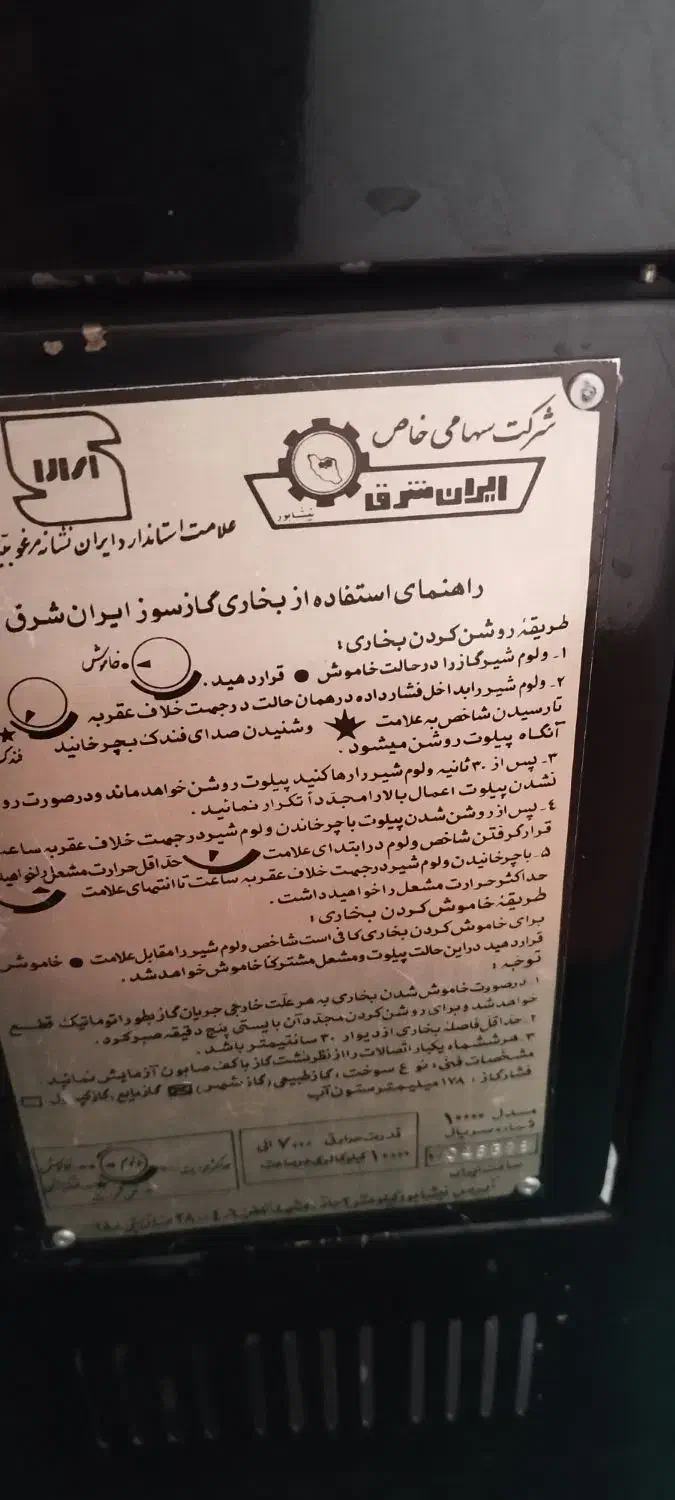 شرکت سهامی خاص
ایران شرق
نیشابور
علامت استاندارد ایران نشانه مرغوبیت
راهنمای استفاده از بخاری گازسوز ایران شرق
طریقهٔ روشن کردن بخاری :
۱ـ ولوم شیر گاز را در حالت خاموش ● قرار دهید.
خاموش
۲ـ ولوم شیر را بداخل فشار داده در همان حالت در جهت خلاف عقربه
تا رسیدن شاخص به علامت ★ و شنیدن صدای فندک بچرخانید
فندک
آنگاه پیلوت روشن میشود .
۳ـ پس از ۳۰ ثانیه ولوم شیر را رها کنید پیلوت روشن خواهد ماند و در صورت رو
نشدن پیلوت اعمال بالا را مجدداً تکرار نمائید .
٤ـ پس از روشن شدن پیلوت با چرخاندن ولوم شیر در جهت خلاف عقربه ساعت
قرار گرفتن شاخص ولوم در ابتدای علامت حداقل حرارت مشعل را خواهید
۵ـ با چرخانیدن ولوم شیر در جهت خلاف عقربه ساعت تا انتهای علامت
حداکثر حرارت مشعل را خواهید داشت .
طریقهٔ خاموش کردن بخاری :
برای خاموش کردن بخاری کافی است شاخص ولوم شیر را مقابل علامت ● خاموش
قرار دهید در این حالت پیلوت و مشعل مشترکاً خاموش خواهد شد .
توجه :
۱ـ در صورت خاموش شدن بخاری به هر علت خارجی جریان گاز بطور اتوماتیک قطع
خواهد شد و برای روشن کردن مجدد آن بایستی پنج دقیقه صبر کرد .
۲ـ حداقل فاصله بخاری از دیوار ۳۰ سانتیمتر باشد .
۳ـ هر ششماه یکبار اتصالات را از نظر نشت گاز با کف صابون آزمایش نمائید .
مشخصات فنی : نوع سوخت : گاز طبیعی (گاز شهر) گاز مایع (گاز کپسول
فشار گاز : ۱۷۸ میلیمتر ستون آب
مدل ۱۰۰۰۰
شماره سریال
قدرت حرارتی ۷۰۰۰ الی
۱۰۰۰۰ کیلو کالری در ساعت
ساخت ایران